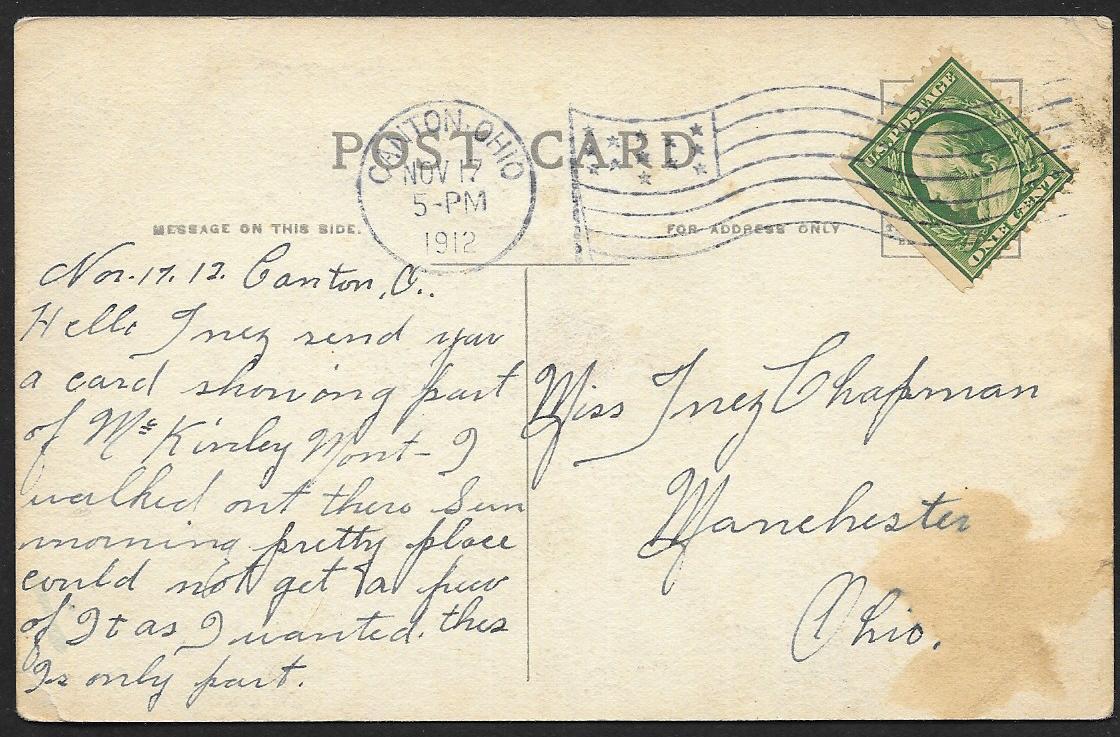 POST CARD
CANTON, OHIO
NOV 17
5-PM
1912
U.S. POSTAGE
ONE CENT
MESSAGE ON THIS SIDE.
FOR ADDRESS ONLY
Nov. 17. 12. Canton, O..
Hello Inez send you
a card showing part
of Mc Kinley Mont- I
walked out there Sun
morning pretty place
could not get a
of It as I wanted. this
Is only part.
Miss Inez Chapman
Manchester
Ohio.